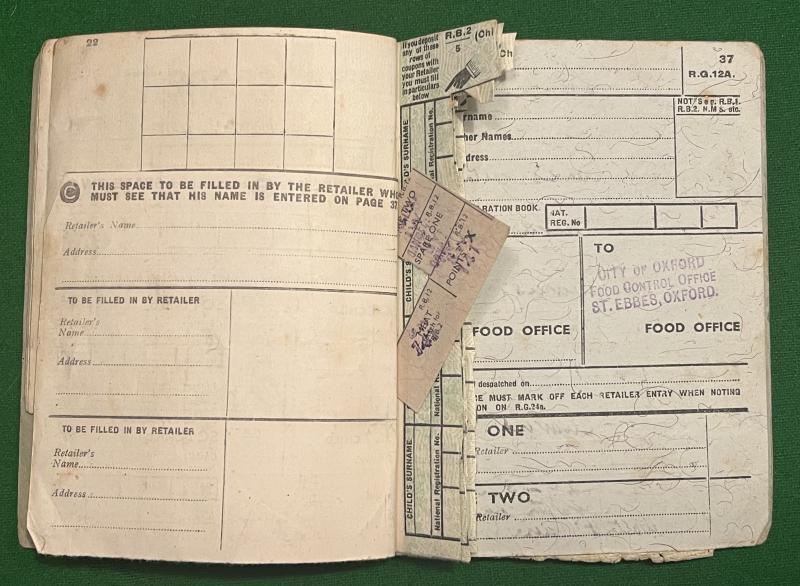 22
C THIS SPACE TO BE FILLED IN BY THE RETAILER WHO
MUST SEE THAT HIS NAME IS ENTERED ON PAGE 37
Retailer's Name
Address
TO BE FILLED IN BY RETAILER
Retailer's
Name
Address
TO BE FILLED IN BY RETAILER
Retailer's
Name
Address
If you deposit
any of these
rows of
coupons with
your Retailer
you must fill
in particulars
below
R.B.2
5
(Ch)
CHILD'S SURNAME
National Registration No.
CHILD'S SURNAME
National Registration No.
R.B.12
SPARE ONE
R.B.12
POINTS
R.B.12
37
R.G.12A.
R.B.4.
R.B.2. N.M s. etc.
rname
her Names
dress
RATION BOOK
NAT.
REG. No
FOOD OFFICE
TO
CITY OF OXFORD
FOOD CONTROL OFFICE
ST. EBBES, OXFORD.
FOOD OFFICE
despatched on
CE MUST MARK OFF EACH RETAILER ENTRY WHEN NOTING
ON ON R.G.24a.
ONE
Retailer
TWO
Retailer